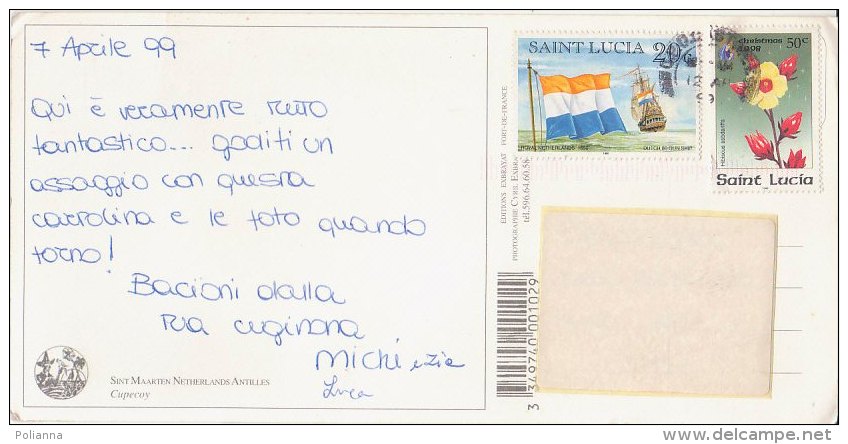 7 Aprile 99
Qui è veramente tutto
fantastico... goditi un
assaggio con questa
cartolina e le foto quando
torno!
Bacioni dalla
tua cuginona
Michi e zie
Luca
SINT MAARTEN NETHERLANDS ANTILLES
Cupecoy
EDITIONS EXBRAYAT FORT-DE-FRANCE
PHOTOGRAPHIE CYRIL EXBRA
tél.596.64.60.58
3 349740 001029
SAINT LUCIA 20c
ROYAL NETHERLANDS 1660
DUTCH 80 GUN SHIP
Christmas
1998
50c
Hibiscus sabdariffa
Saint Lucia
Polianna
delcampe.net